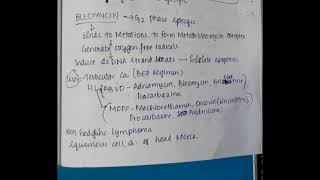 BLEOMYCIN → G2 Phase specific
binds to Metal ions to form Metallobleomycin complex
Generate oxygen free radicals
Induce ds DNA strand breaks → Initiate apoptosis
Uses- Testicular Ca (BEP Regimen)
HL → ABVD - Adriamycin, Bleomycin, Vinblastine
Dacarbazine
MOPP - Mechlorethamin, Oncovin (Vincristine)
Procarbazine, Prednisolone
Non hodgkins lymphoma
Squamous cell Ca. of head & Neck